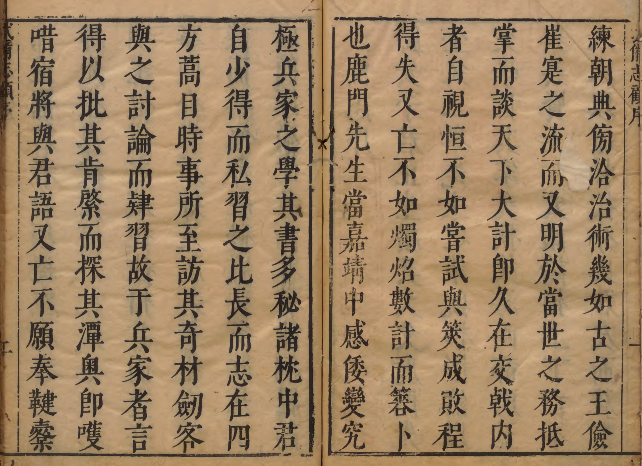 練朝典傍洽治術幾如古之王儉
崔寔之流而又明於當世之務抵
掌而談天下大計卽久在交戟内
者自視恒不如嘗試與筴成敗程
得失又亡不如燭炤數計而簭卜
也鹿門先生當嘉靖中感倭變究
極兵家之學其書多秘諸枕中君
自少得而私習之比長而志在四
方蒿目時事所至訪其奇材劒客
與之討論而肄習故于兵家者言
得以批其肯綮而探其潭奥卽嚄
唶宿將與君語又亡不願奉鞬櫜